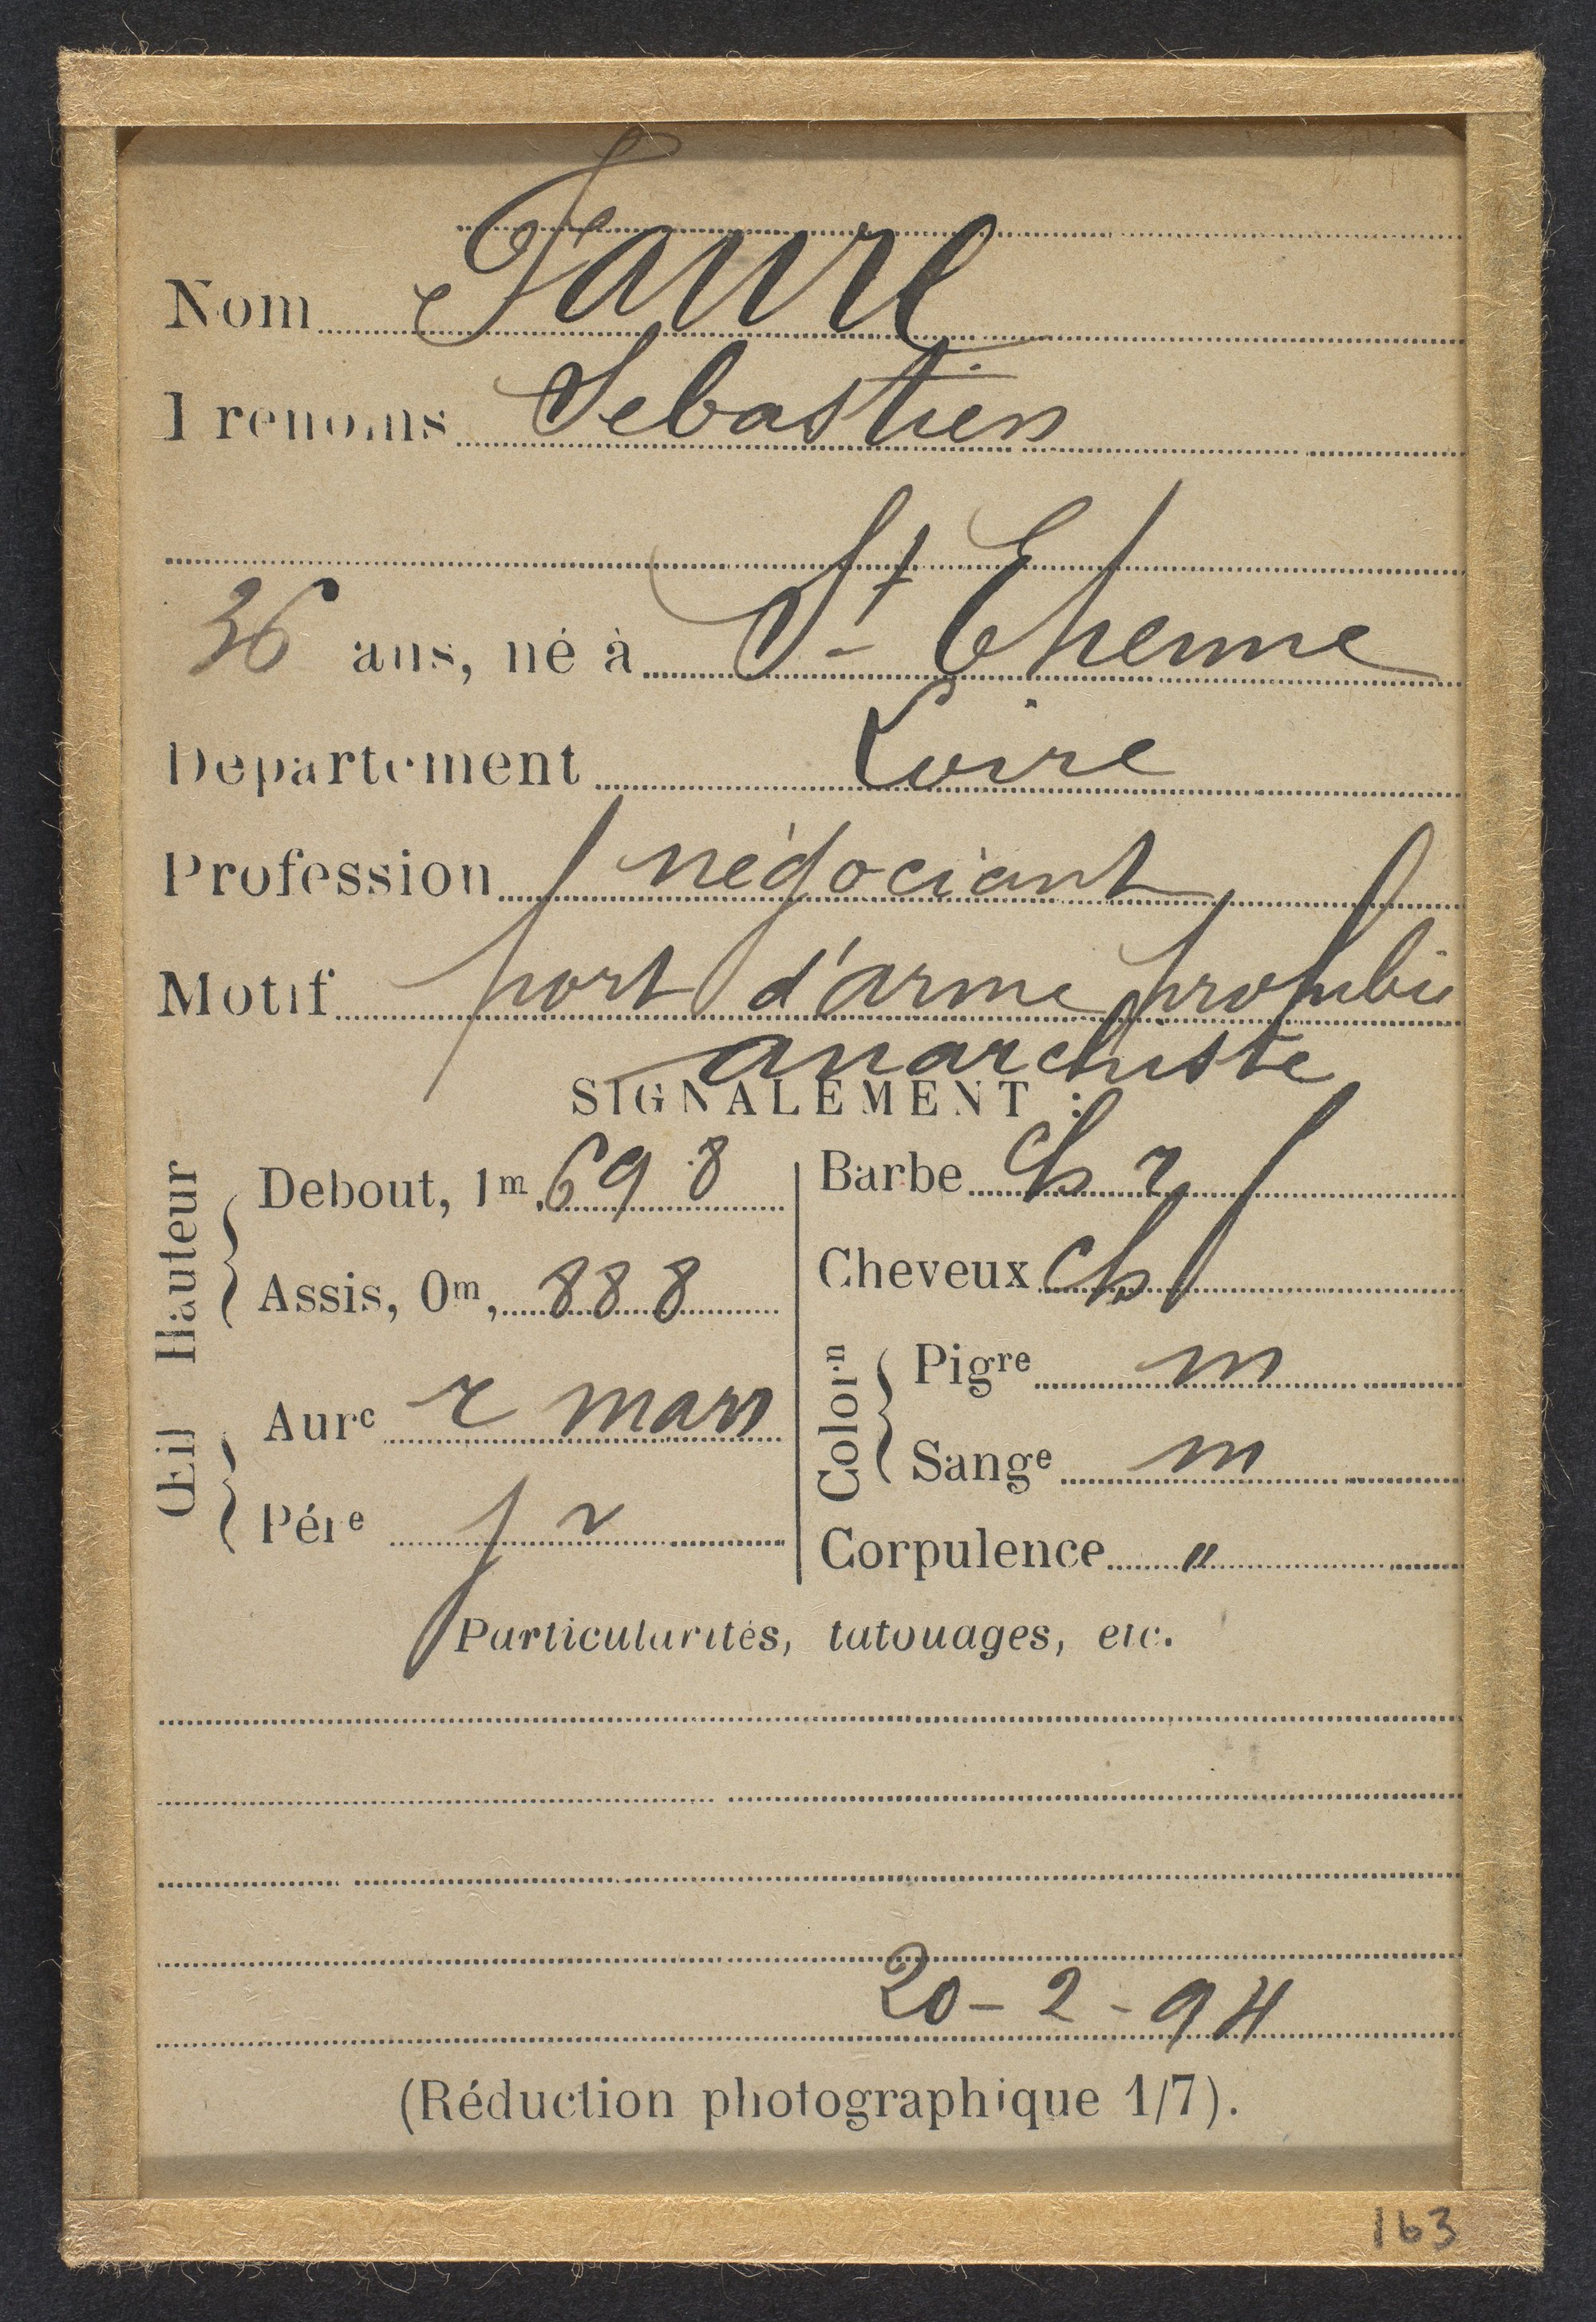 Nom Faure
Prénoms Sebastien
36 ans, né à St Etienne
Département Loire
Profession négociant
Motif port d'arme prohibée
anarchiste
SIGNALEMENT :
Hauteur
Debout, 1m, 69 8
Assis, 0m, 88 8
Œil
Aurc r mar
Pére
Barbe ch r
Cheveux ch
Colorn
Pigre m
Sange m
Corpulence "
Particularités, tatouages, etc.
20-2-94
(Réduction photographique 1/7).
163